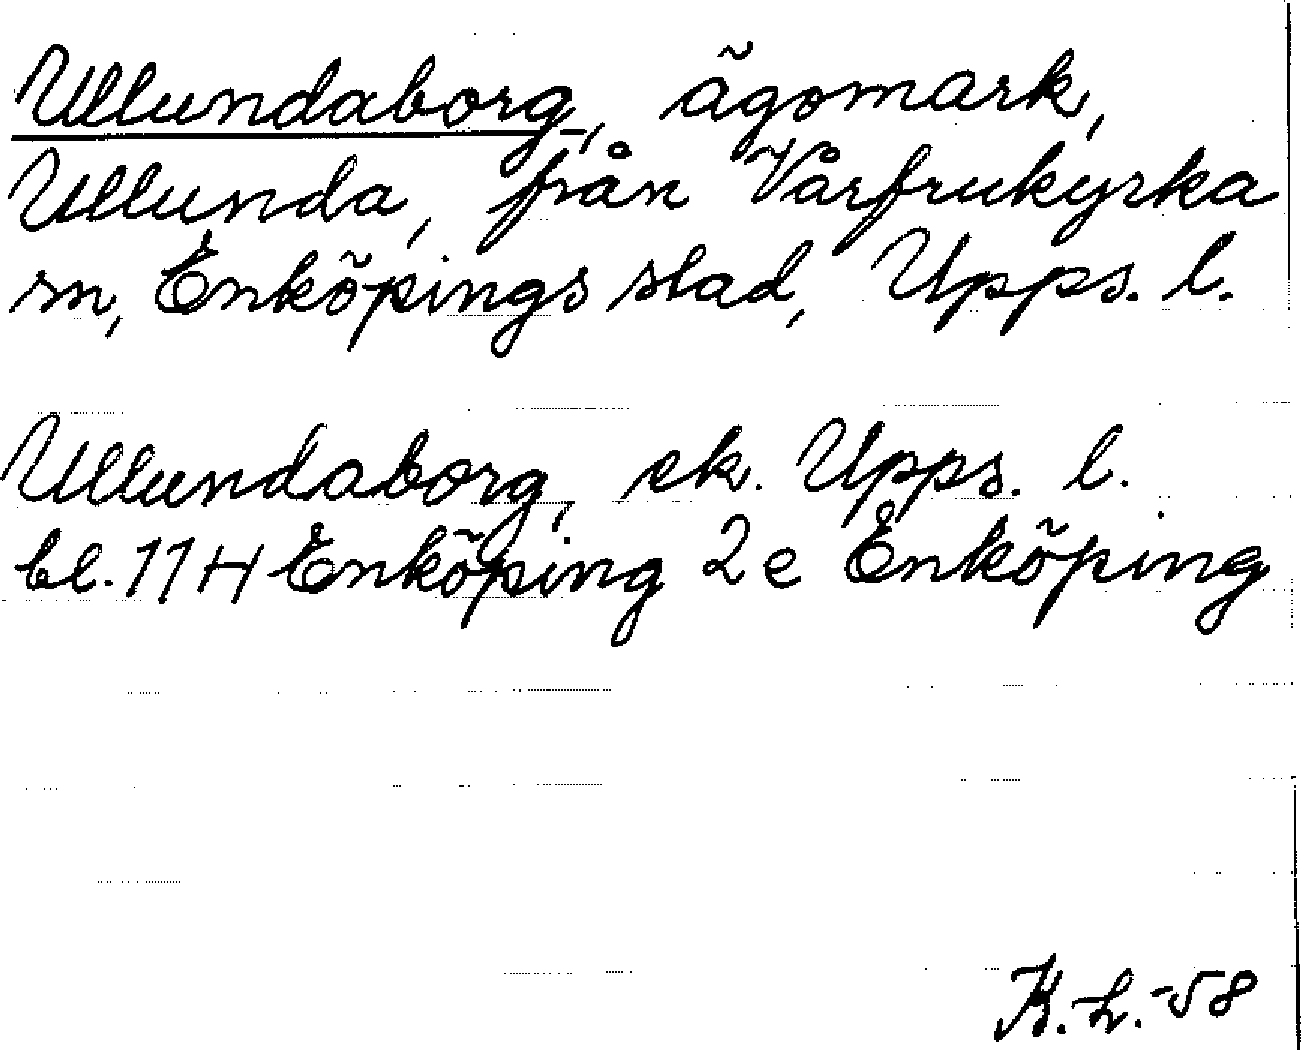 Ullundaborg, ägomark,
Ullunda, från Vårfrukyrka
sn, Enköpings stad, Upps. l.
Ullundaborg, ek. Upps. l.
bl. 11H Enköping 2e Enköping
K.L.-58